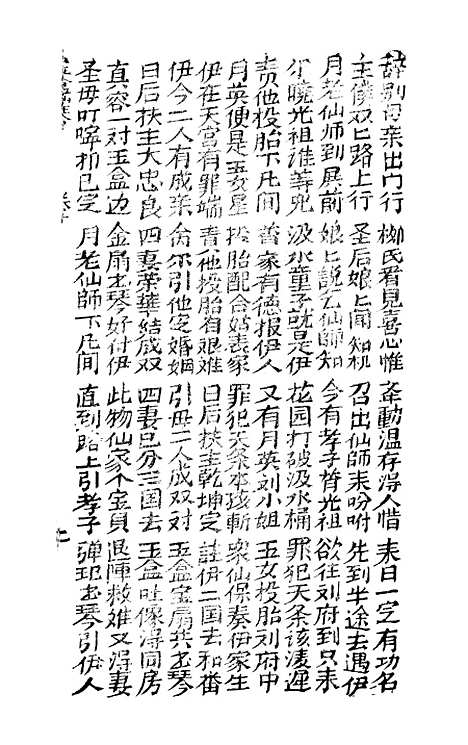 辞别母亲出门行 柳氏看見喜心惟 牽動温存得人惜 未日一定有功名
主僕双匕路上行 圣后娘匕聞知机 召出仙師未吩咐 先到半途去遇伊
月老仙师到展前 娘匕説乞仙師知 今有孝子胥光祖 欲往刘府到只未
尔曉光祖誰等兜 汲水童子就是伊 花园打破汲水桶 罪犯天条该凌遲
责他投胎下凡間 普家有德报伊人 又有月英刘小姐 五女投胎刘府中
月英便是五女星 投胎配合姑表家 罪犯天条本该斬 衆仙保奏伊家生
伊在天宫有罪端 責他投胎有艰难 日后扶主乾坤定 註伊二国去和番
伊今二人有成亲 舍尔引他定婚姻 引毋二人成双对 玉盒宝扇共玉琴
日后扶主大忠良 四妻荣華結成双 四妻已分三国去 玉盒吐像得同房
直容一对玉盒边 金扇玉琴好付伊 此物仙家个宝貝 退陣救难又得妻
圣毋叮嚀拍已定 月老仙師下凡間 直到路上引孝子 弹琅玉琴引伊人